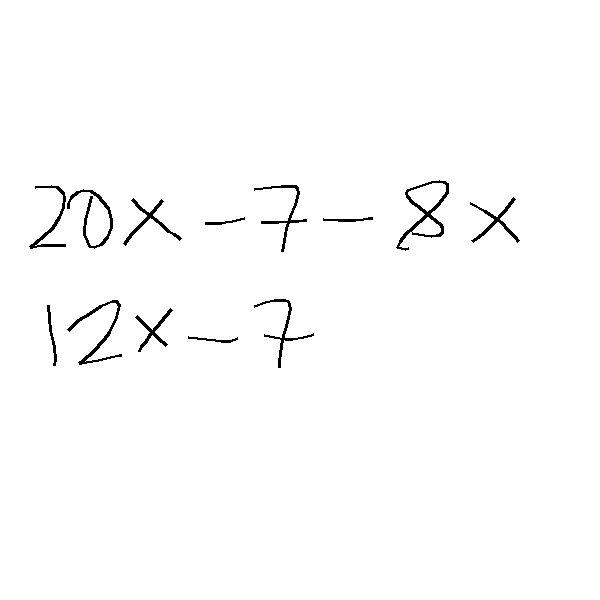 20x - 7 - 8x
12x - 7